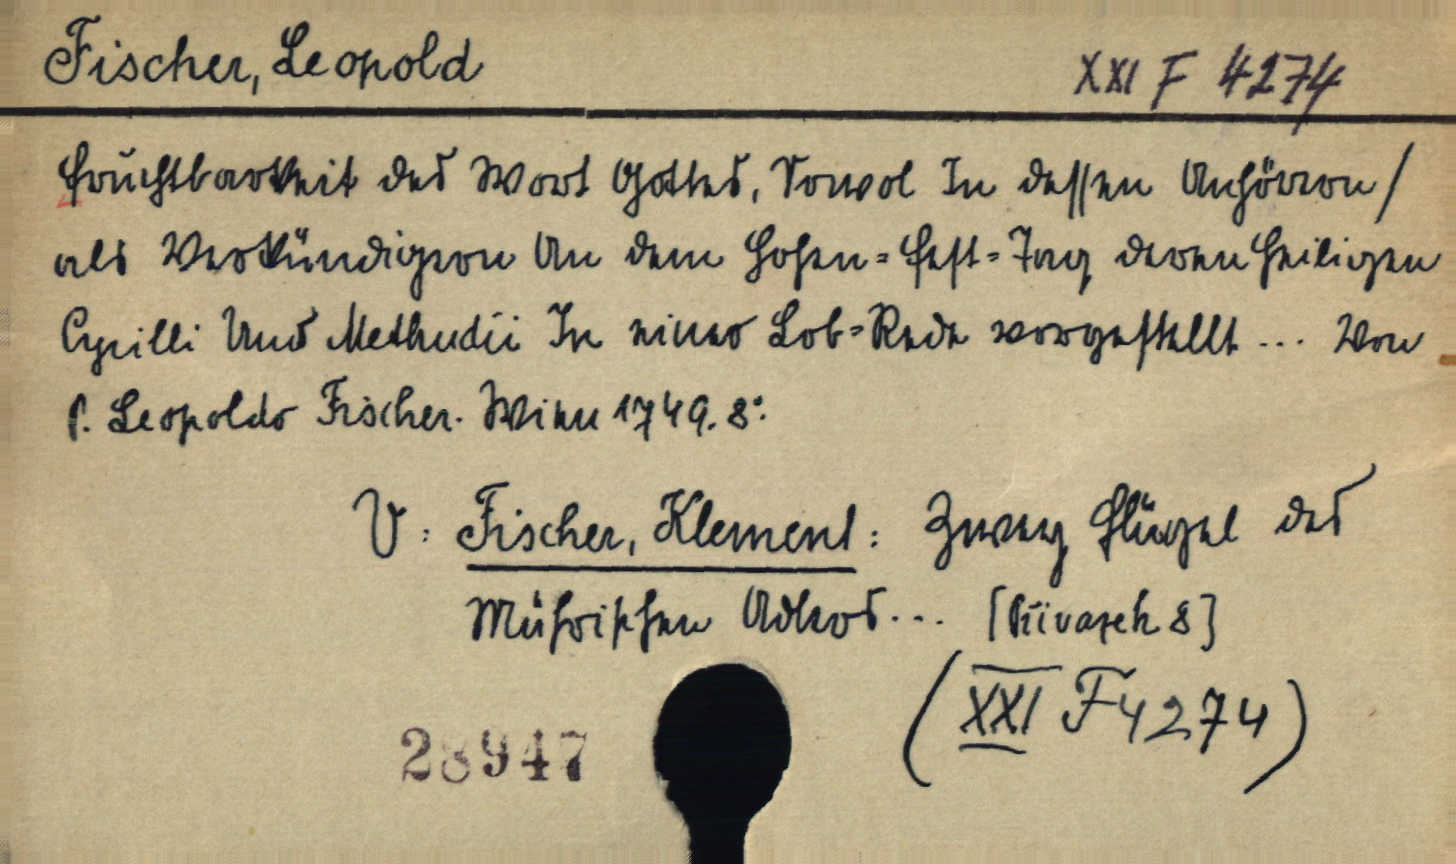 Fischer, Leopold
XXI F 4274
Fruchtbarkeit des Wort Gottes, Sowol In dessen Anhörern /
als Verkündigern An dem Hohen=Fest=Tag deren Heiligen
Cyrilli Und Methudii In einer Lob=Rede vorgestellt ... Von
P. Leopoldo Fischer. Wien 1749. 8°.
V: Fischer, Klement: Zwey Flügel des
Mährischen Adlers ... [8]
(XXI F 4274)
28947